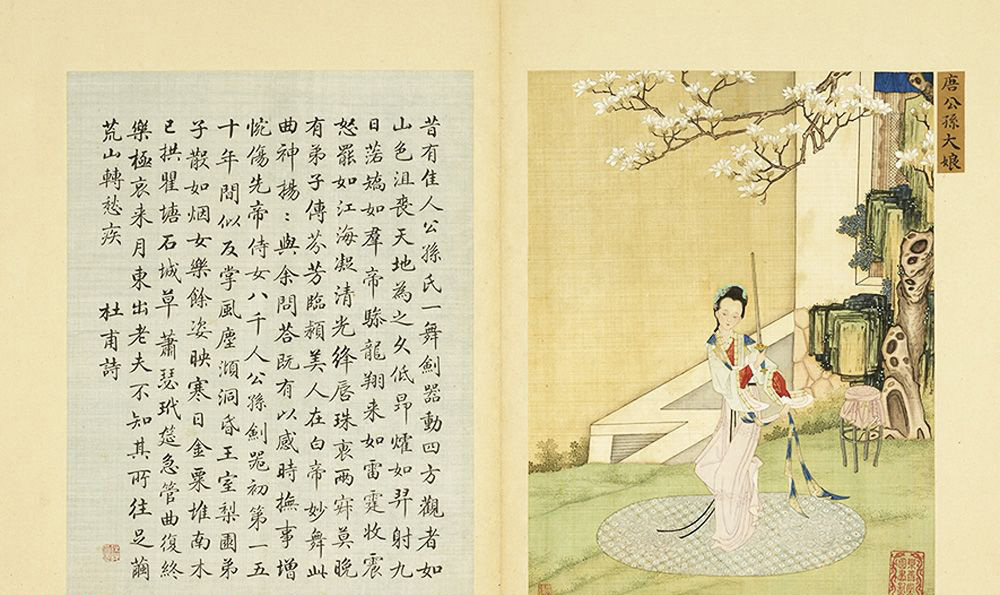 唐公孫大娘
昔有佳人公孫氏一舞劍器動四方觀者如
山色沮喪天地為之久低昂燿如羿射九
日落矯如羣帝驂龍翔来如雷霆收震
怒罷如江海凝清光絳唇珠袖兩寂莫晚
有弟子傳芬芳臨潁美人在白帝妙舞此
曲神揚〻與余問荅既有以感時撫事增
惋傷先帝侍女八千人公孫劍器初第一五
十年間似反掌風塵澒洞昏王室梨園弟
子散如烟女樂餘姿映寒日金粟堆南木
已拱瞿塘石城草蕭瑟玳筵急管曲復終
樂極哀来月東出老夫不知其所往足繭
荒山轉愁疾 杜甫詩